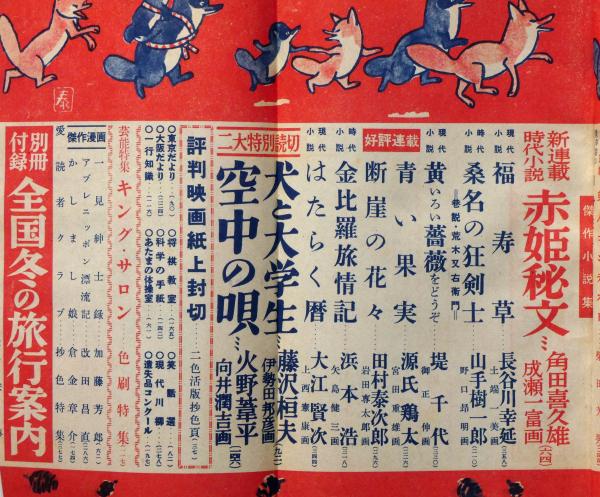 泰
傑作小説集
新連載
時代小説
赤姫秘文…
角田喜久雄
成瀬一富画
(六四)
現代小説
福寿草
長谷川幸延
土端一美画
(三五八)
時代小説
桑名の狂剣士
=巷説・荒木又右衛門=
山手樹一郎
野口昂明画
現代小説
黄いろい薔薇をどうぞ…
堤千代
御正伸画
(三二〇)
好評連載
青い果実
源氏鶏太
宮田重雄画
断崖の花々
田村泰次郎
岩田専太郎画
時代小説
金比羅旅情記
浜本浩
矢島健三画
(三二八)
現代小説
はたらく暦
大江賢次
上西憲康画
(三四四)
二大特別読切
犬と大学生…
藤沢桓夫
伊勢田邦彦画
(九二)
空中の唄…
火野葦平
向井潤吉画
評判映画紙上封切
二色活版抄色頁
◎東京だより
◎大阪だより
◎一行知識
◎将棋教室
◎科学の手紙
◎あたまの体操室
◎笑話選
◎現代川柳
◎遺失品コンクール
芸能特集
キング・サロン
色刷特集
傑作漫画
一見紳士録
加藤芳郎
アプレニッポン漂流記
改田昌直
かしまし娘
倉金章介
愛読者クラブ
抄色特集
別冊付録
全国冬の旅行案内